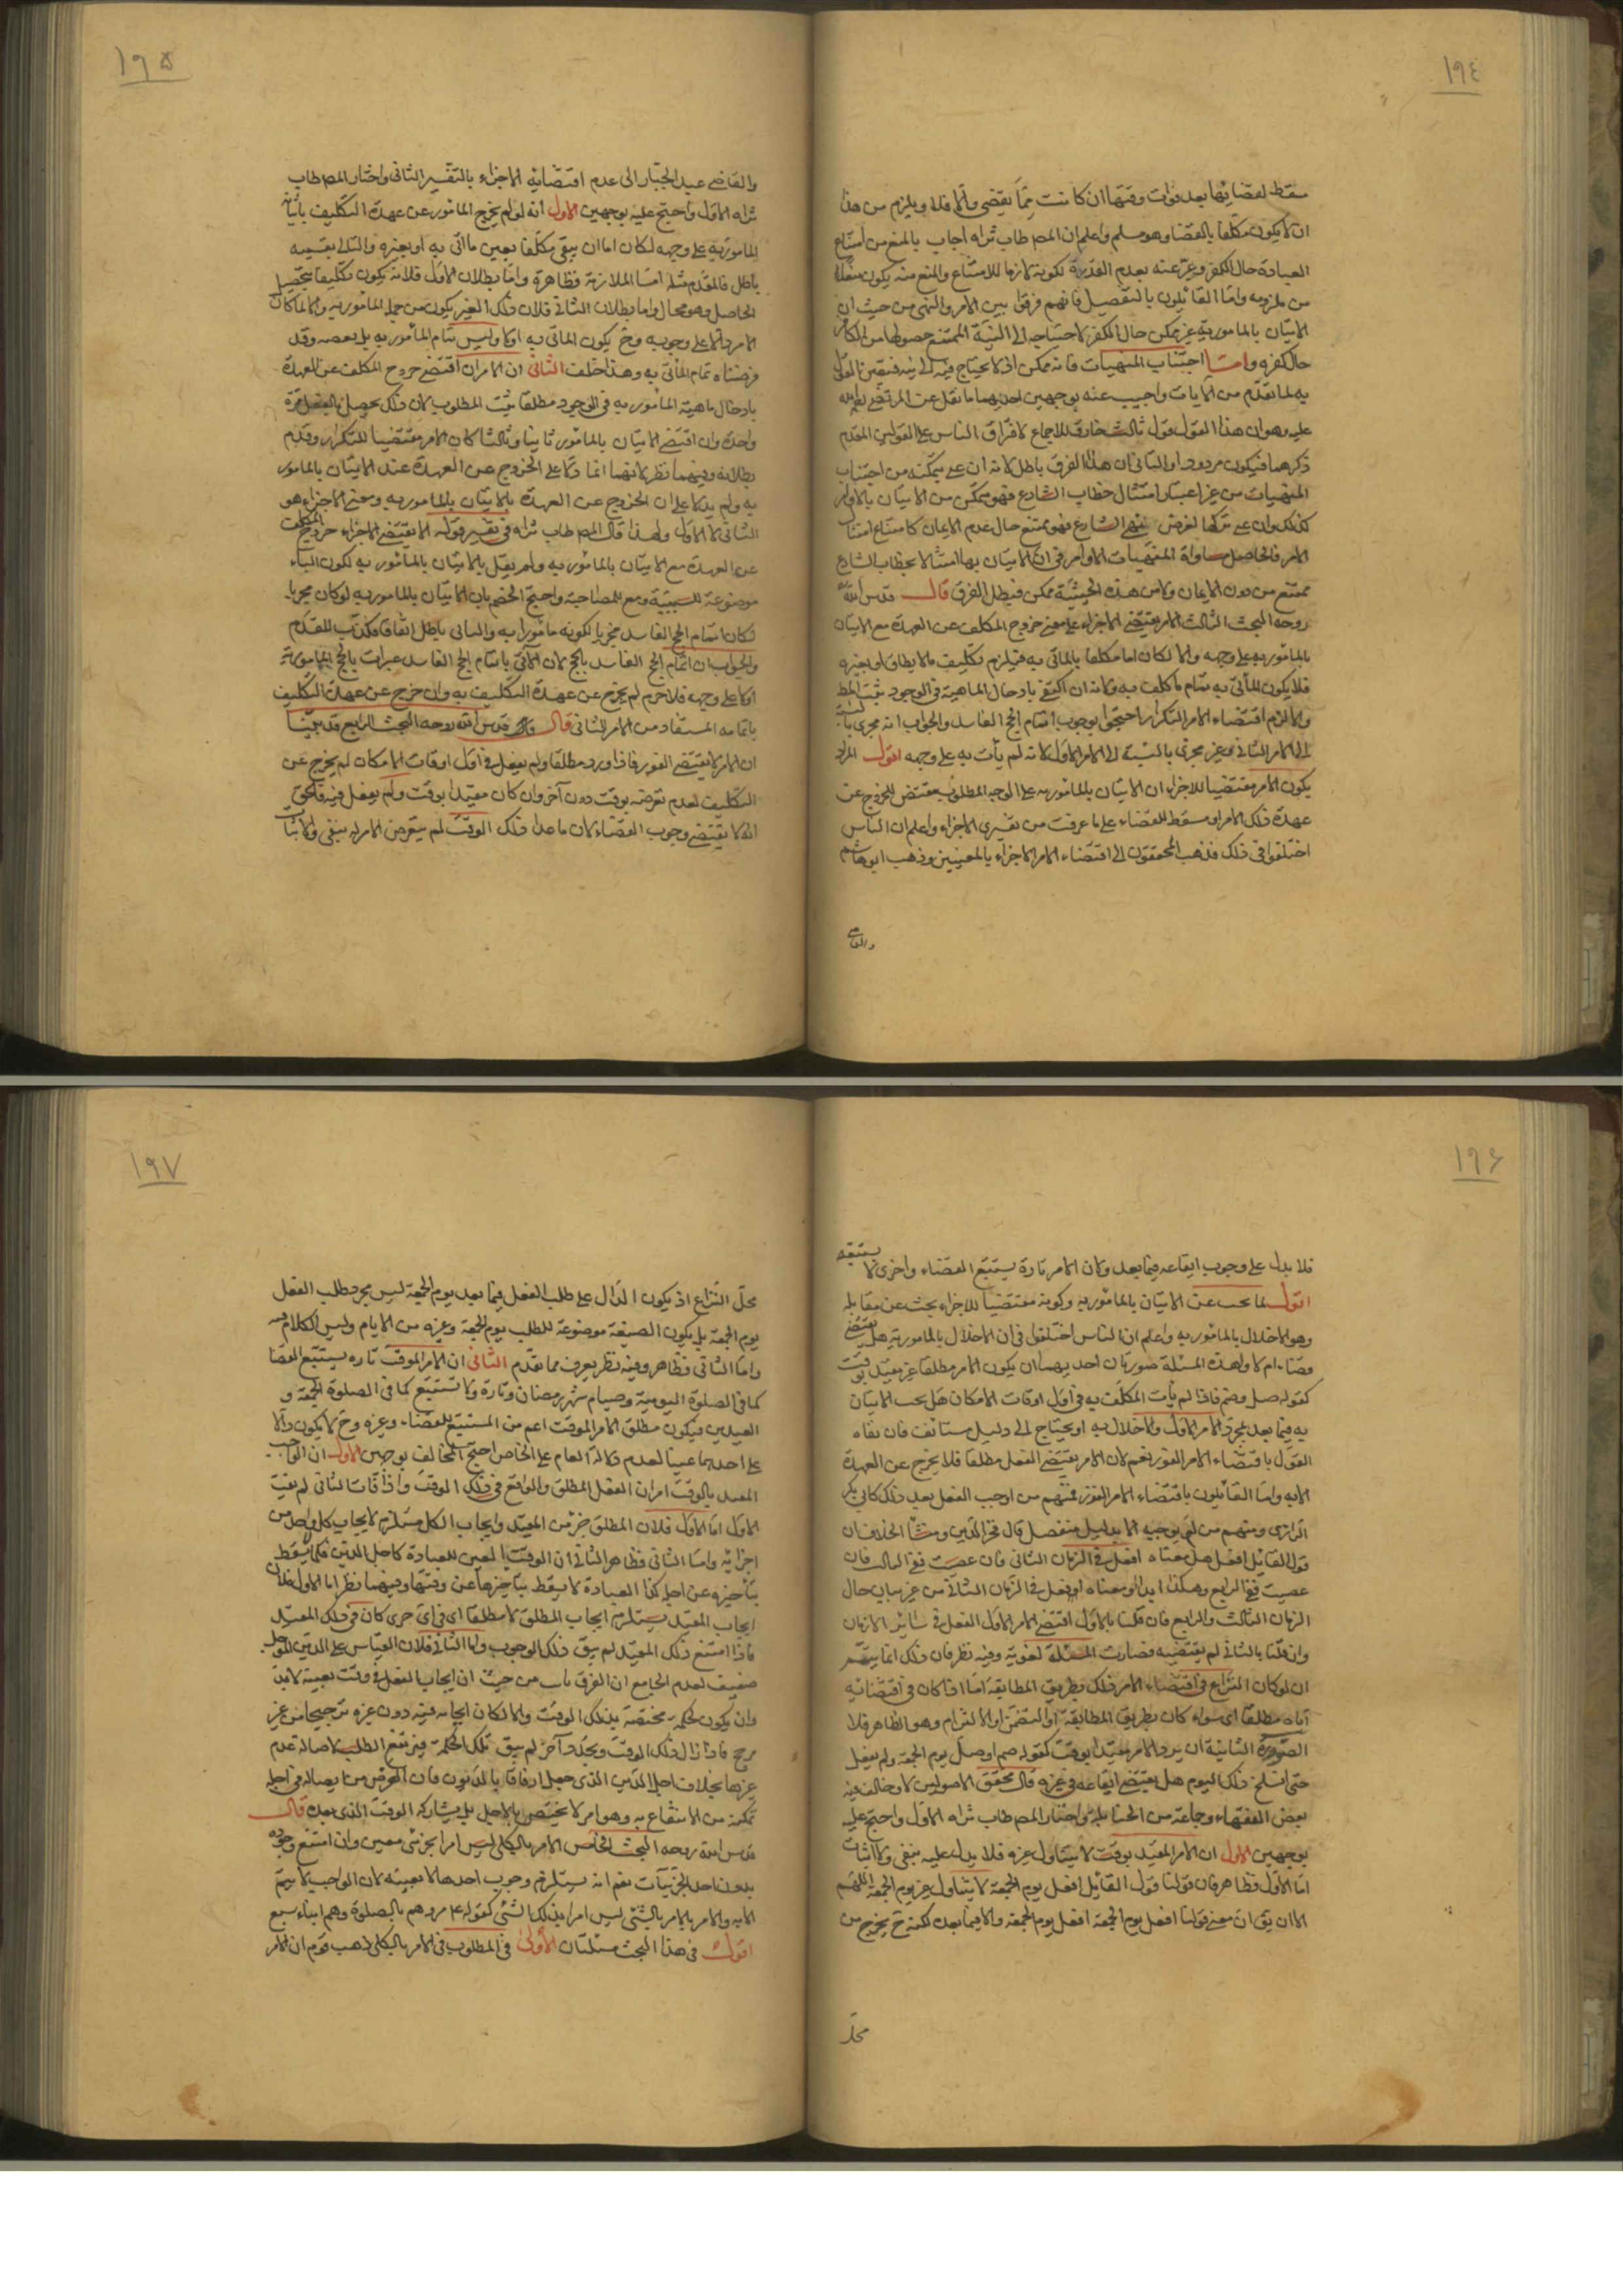 ١٩٤
سقط لقضائها بعد فوات وقتها ان كانت مما يقضى والا فلا ويلزم من هذا
ان لا يكون مكلفا بالقضا وهو مسلم واعلم ان المص طاب ثراه اجاب بالمنع من امتناع
العبادة حال الكفر وعبر عنه بعدم القدرة لكونه لازما للامتناع والمنع منه يكون منعا
من ملزومه واما القائلون بالتفصيل فانهم فرقوا بين الامر والنهى من حيث ان
الاتيان بالمامور به غير ممكن حال الكفر لاحتياجه الى النية الممتنع حصولها من الكافر
حال كفره واما اجتناب المنهيات فانه ممكن اذ لا يحتاج فيه الى نية فتعين القول
به لما تقدم من الايات واجيب عنه بوجهين احدهما ما نقل عن المرتضى رحمه الله
عليه وهو ان هذا القول قول ثالث خارق للاجماع لافتراق الناس على القولين المقدم
ذكرهما فيكون مردودا والثانى ان هذا الفرق باطل لانه ان عنى بتمكنه من اجتناب
المنهيات من غير اعتبار امتثال خطاب الشارع فهو متمكن من الاتيان بالاوامر
كذلك وان عنى تركها لغرض نهى الشارع فهو ممتنع حال عدم الايمان كامتناع امتثال
الامر فالحاصل مساواة المنهيات الاوامر فى ان الاتيان بها امتثالا لخطاب الشارع
ممتنع من دون الايمان ولا من هذه الحيثية ممكن فبطل الفرق قال قدس الله
روحه البحث الثالث الامر يقتضى الاجزاء على معنى خروج المكلف عن العهدة مع الاتيان
بالمامور به على وجهه والا لكان اما مكلفا بالماتى به فيلزم تكليف ما لا يطاق او بغيره
فلا يكون المأتى به تمام ما كلف به ولانه ان اكتفى بادخال الماهية فى الوجود ثبت المط
والا لزم اقتضاء الامر التكرار احتجوا بوجوب اتمام الحج الفاسد والجواب انه مجزى بالنسبة
الى الامر الثانى غير مجزى بالنسبة الى الامر الاول لانه لم يأت به على وجهه اقول المراد
بكون الامر مقتضيا للاجزاء ان الاتيان بالمامور به على الوجه المطلوب مقتض للخروج عن
عهدة ذلك الامر او مسقط للقضاء على ما عرفت من تفسيرى الاجزاء واعلم ان الناس
اختلفوا فى ذلك فذهب المحققون الى اقتضاء الامر الاجزاء بالمعنيين وذهب ابو هاشم
والقاضى
١٩٥
والقاضى عبد الجبار الى عدم اقتضائه الاجزاء بالتفسير الثانى واختار المص طاب
ثراه الاول واحتج عليه بوجهين الاول انه لو لم يخرج المامور عن عهدة التكليف باتيانه
المامور به على وجهه لكان اما ان يبقى مكلفا بعين ما اتى به او بغيره والتالى بقسميه
باطل فالمقدم مثله اما الملازمة فظاهرة واما بطلان الاول فلانه يكون تكليفا بتحصيل
الحاصل وهو محال واما بطلان الثانى فلان ذلك الغير يكون من جملة المامور به والا لما كان
الامر دالا على وجوبه وح يكون الماتى به اولا وليس تمام المأمور به بل بعضه وقد
فرضناه تمام المأتى به وهذا خلف الثانى ان الامر ان اقتضى خروج المكلف عن العهدة
بادخال ماهية المامور به فى الوجود مطلقا ثبت المطلوب لان ذلك يحصل بالفعل مرة
واحدة وان اقتضى الاتيان بالمامور ثانيا وثالثا كان الامر مقتضيا للتكرار وقدم
بطلانه وفيهما نظر لانهما انما دلا على الخروج عن العهدة عند الاتيان بالمامور
به ولم يدلا على ان الخروج عن العهدة بالاتيان بالمامور به ومعنى الاجزاء هو
الثانى لا الاول ولهذا قال المص طاب ثراه فى تفسير قوله الامر يقتضى الاجزاء خروج المكلف
عن العهدة مع الاتيان بالمامور به ولم يقل بالاتيان بالمامور به لكون الباء
موضوعة للسببية ومع للمصاحبة واحتج الخصم بان الاتيان بالمامور به لو كان مجزيا
لكان اتمام الحج الفاسد مجزيا لكونه مامورا به والتالى باطل اتفاقا فكذا المقدم
والجواب ان اتمام الحج الفاسد بالحج لان الاتى باتمام الحج الفاسد غير ات بالحج المامور به
اولا على وجهه فلا جرم لم يخرج عن عهدة التكليف به وان خرج عن عهدة التكليف
باتمامه المستفاد من الامر الثانى قال قدس الله روحه البحث الرابع قد بينا
ان الامر لا يقتضى الفور فاذا ورد مطلقا ولم يفعل فى اول اوقات الامكان لم يخرج عن
التكليف لعدم تعرضه بوقت دون آخر وان كان مقيدا بوقت ولم يفعل فيه فالحق
انه لا يقتضى وجوب القضاء لان ما عدا ذلك الوقت لم يتعرض الامر له بنفى ولا اثبات
١٩٦
فلا يدل على وجوب ايقاعه فيما بعد ولان الامر تارة يستتبع القضاء واخرى لا يستتبعه
اقول لما بحث عن الاتيان بالمامور به وكونه مقتضيا للاجزاء بحث عن مقابله
وهو الاخلال بالمامور به واعلم ان الناس اختلفوا فى ان الاخلال بالمامور به هل يقتضى
قضاءه ام لا ولهذه المسئلة صورتان احديهما ان يكون الامر مطلقا غير مقيد بوقت
كقوله صل وصم فاذا لم يأت المكلف به فى اول اوقات الامكان هل يجب الاتيان
به فيما بعد بمجرد الامر الاول والاخلال به او يحتاج الى دليل مستانف فان نفاه
القول باقتضاء الامر الفور نعم لان الامر يقتضى الفعل مطلقا فلا يخرج عن العهدة
الا به واما القائلون باقتضاء الامر الفور فمنهم من اوجب الفعل بعد ذلك كابى بكر
الرازى ومنهم من لم يوجبه الا بدليل منفصل قال فخر الدين ومنشأ الخلاف ان
قول القائل افعل هل معناه افعل فى الزمان الثانى فان عصيت ففى الثالث فان
عصيت ففى الرابع وهكذا ابدا او معناه افعل فى الزمان الثانى من غير بيان حال
الزمان الثالث والرابع فان قلنا بالاول اقتضى الامر الاول الفعل فى سائر الازمان
وان قلنا بالثانى لم يقتضيه فصارت المسئلة لغوية وفيه نظر فان ذلك انما يتم
ان لو كان النزاع فى اقتضاء الامر ذلك بطريق المطابقة اما اذا كان فى اقتضائه
اياه مطلقا اى سواء كان بطريق المطابقة او التضمن او الالتزام وهو الظاهر فلا
الصورة الثانية ان يرد الامر مقيدا بوقت كقوله صم او صل يوم الجمعة ولم يفعل
حتى انسلخ ذلك اليوم هل يقتضى ايقاعه فى غيره قال محققو الاصوليين لا وخالف فيه
بعض الفقهاء وجماعة من الحنابلة واختار المص طاب ثراه الاول واحتج عليه
بوجهين الاول ان الامر المقيد بوقت لا يتناول غيره فلا يدل عليه بنفى ولا اثبات
اما الاول فظاهر فان قولنا قول القائل افعل يوم الجمعة لا يتناول غير يوم الجمعة اللهم
الا ان يق ان معنى قولنا افعل يوم الجمعة افعل يوم الجمعة والا فيما بعده لكنه ح يخرج من
محل
١٩٧
محل النزاع اذ يكون الدال على طلب الفعل فيما بعد يوم الجمعة ليس مجرد طلب الفعل
يوم الجمعة بل يكون الصيغة موضوعة للطلب يوم الجمعة وغيره من الايام وليس الكلام فيه
واما الثانى فظاهر وفيه نظر يعرف مما تقدم الثانى ان الامر الموقت تارة يستتبع القضا
كما فى الصلوة اليومية وصيام شهر رمضان وتارة ولا تستتبع كما فى الصلوة الجمعة و
العيدين فيكون مطلق الامر الموقت اعم من المستتبع للقضاء وغيره وح لا يكون دالا
على احدهما عينا لعدم دلالة العام على الخاص احتج المخالف بوجهين الاول ان الواجب
المقيد بالوقت امران الفعل المطلق والواقع فى ذلك الوقت واذا فات الثانى لم يفت
الاول اما الاول فلان المطلق جزء من المقيد وايجاب الكل مستلزم لايجاب كل واحد من
اجزائه واما الثانى فظاهر الثانى ان الوقت المعين للعبادة كاجل الدين فكما لا يسقط
بتأخيره عن اجله كذا العبادة لا يسقط بتاخيرها عن وقتها وفيهما نظر اما الاول فلان
ايجاب المقيد يستلزم ايجاب المطلق لا مطلقا اى فى اى جزى كان فى ذلك المقيد
فاذا امتنع ذلك المقيد لم يبق ذلك الوجوب واما الثانى فلان القياس على الدين المؤجل
ضعيف لعدم الجامع ان الفرق ثابت من حيث ان ايجاب الفعل فى وقت بعينه لا بد
وان يكون لحكمة مختصة بذلك الوقت والا لكان ايجابه فيه دون غيره ترجيحا من غير
مرجح فاذا زال ذلك الوقت وتجدد آخر لم يبق تلك الحكمة فيرتفع الطلب لاصالة عدم
غيرها بخلاف اجل الدين الذى جعل ارفاقا بالمديون فان الغرض من ايصاله فى اجله
تمكنه من الانتفاع به وهو امر لا يختص بالاجل بل يشاركه الوقت الذى بعده قال
قدس الله روحه البحث الخامس الامر بالكلى ليس امرا بجزئى معين وان امتنع وجوده
بدون احد الجزئيات نعم انه يستلزم وجوب احدها لا بعينه لان الواجب لا يتم
الا به والامر بالامر بالشئ ليس امرا بذلك الشئ كقوله ع مروهم بالصلوة وهم ابناء سبع
اقول فى هذا البحث مسئلتان الاولى فى المطلوب فى الامر بالكلى ذهب قوم ان الامر